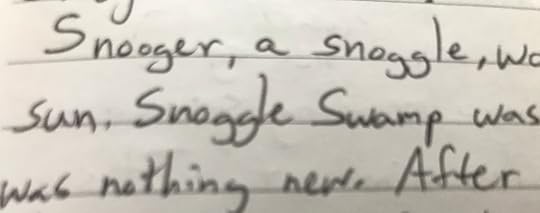 Snooger, a snoggle, wo
sun. Snoggle Swamp was
was nothing new. After